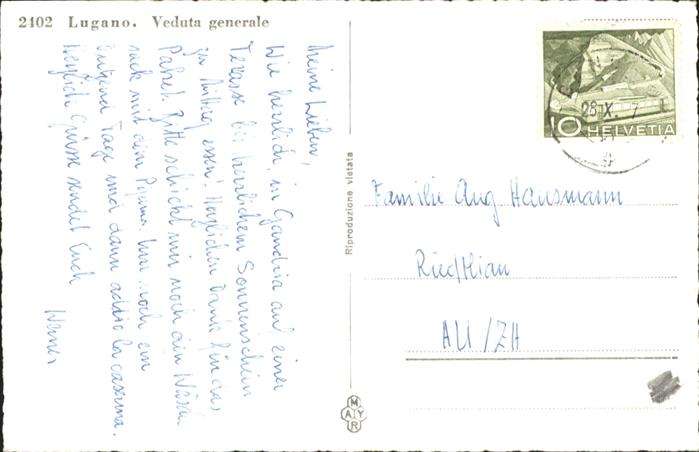 2402 Lugano. Veduta generale
Meine Lieben,
Wie herrlich, in Gandria auf einer
Terasse bei herrlichem Sonnenschein
zu Mittag essen! Herzlichen Dank für das
Paket. Bitte schickt mir noch ein Wäsch-
sack mit dem Pyjama. Nur noch ein
Tage und dann addio la caserma.
Herzlich Grüsse sendet Euch
Werner
Riproduzione vietata
MAYR
10 HELVETIA
28.X. 7
Familie Aug. Hausmann
Riedthian
AU/ZH